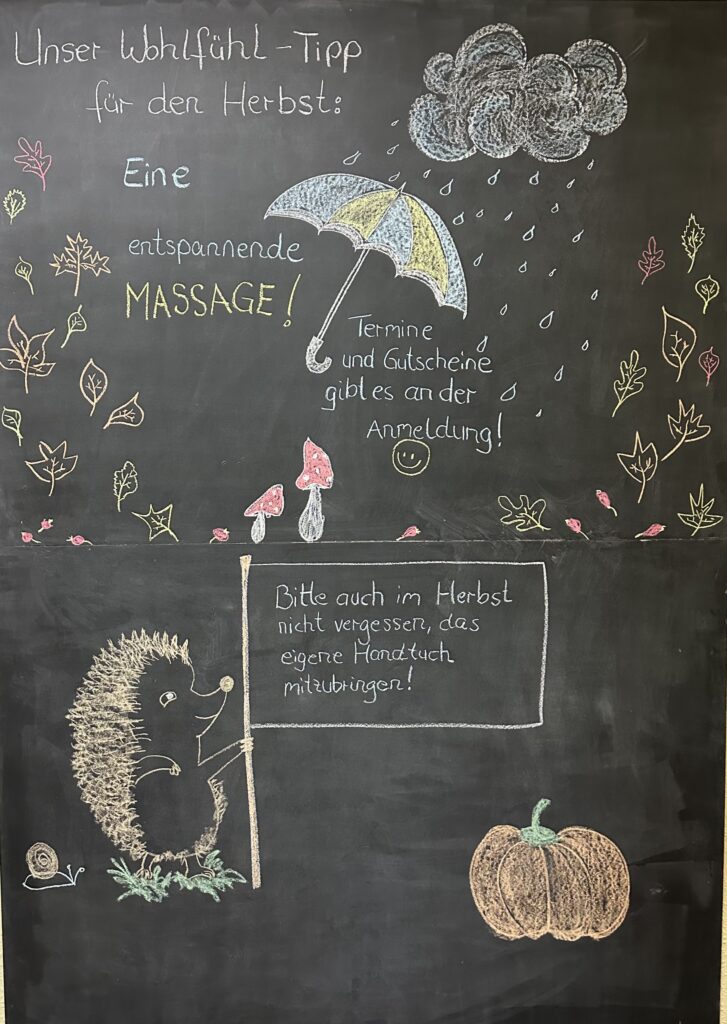 Unser Wohlfühl-Tipp
für den Herbst:
Eine
entspannende
MASSAGE!
Termine
und Gutscheine
gibt es an der
Anmeldung!
Bitte auch im Herbst
nicht vergessen, das
eigene Handtuch
mitzubringen!